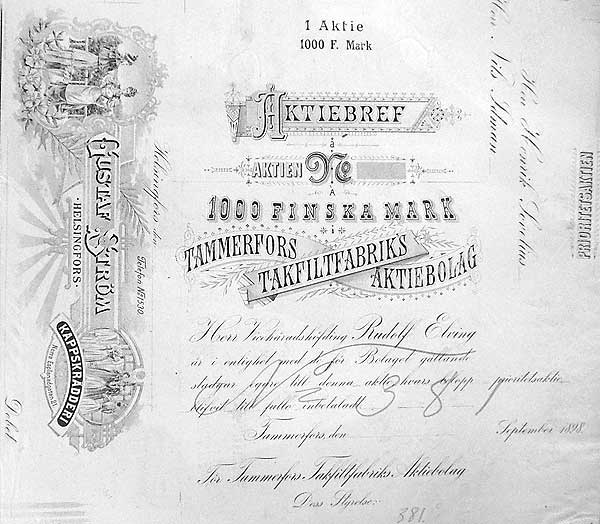 1 Aktie
1000 F. Mark
AKTIEBREF
å
AKTIEN No
Å
1000 FINSKA MARK
i
TAMMERFORS
TAKFILTFABRIKS
AKTIEBOLAG
Herr Vicehäradshöfding Rudolf Elving
är i enlighet med de för Bolaget gällande
stadgar egare till denna aktie hvars belopp prioritetsaktie
blifvit till fullo inbetaladt
Tammerfors, den September 1898.
För Tammerfors Takfiltfabriks Aktiebolag
Dess Styrelse:
381
GUSTAF STRÖM
·HELSINGFORS·
KAPPSKRÄDDERI
Norra Esplanadgatan 21
Helsingfors den
Telefon No 1530.
Debet
Herr Nils
Herr Henrik
PRIORITETSAKTIEN